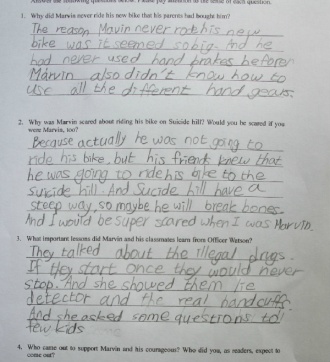 Answer the following questions below. Please pay attention to the tense of each question.
1. Why did Marvin never ride his new bike that his parents had bought him?
The reason Mavin never rode his new
bike was it seemed so big. And he
had never used hand brakes before.
Marvin also didn't know how to
use all the different hand gears.
2. Why was Marvin scared about riding his bike on Suicide hill? Would you be scared if you
were Marvin, too?
Because actually he was not going to
ride his bike, but his friends knew that
he was going to ride his bike to the
Suicide hill. And Sucide hill have a
steep way, so maybe he will break bones.
And I would be super scared when I was Marvin.
3. What important lessons did Marvin and his classmates learn from Officer Watson?
They talked about the illegal drugs.
If they start once they would never
stop. And she showed them lie
detector and the real handcuffs.
And she asked some questions to
few kids
4. Who came out to support Marvin and his courageous? Who did you, as readers, expect to
come out?